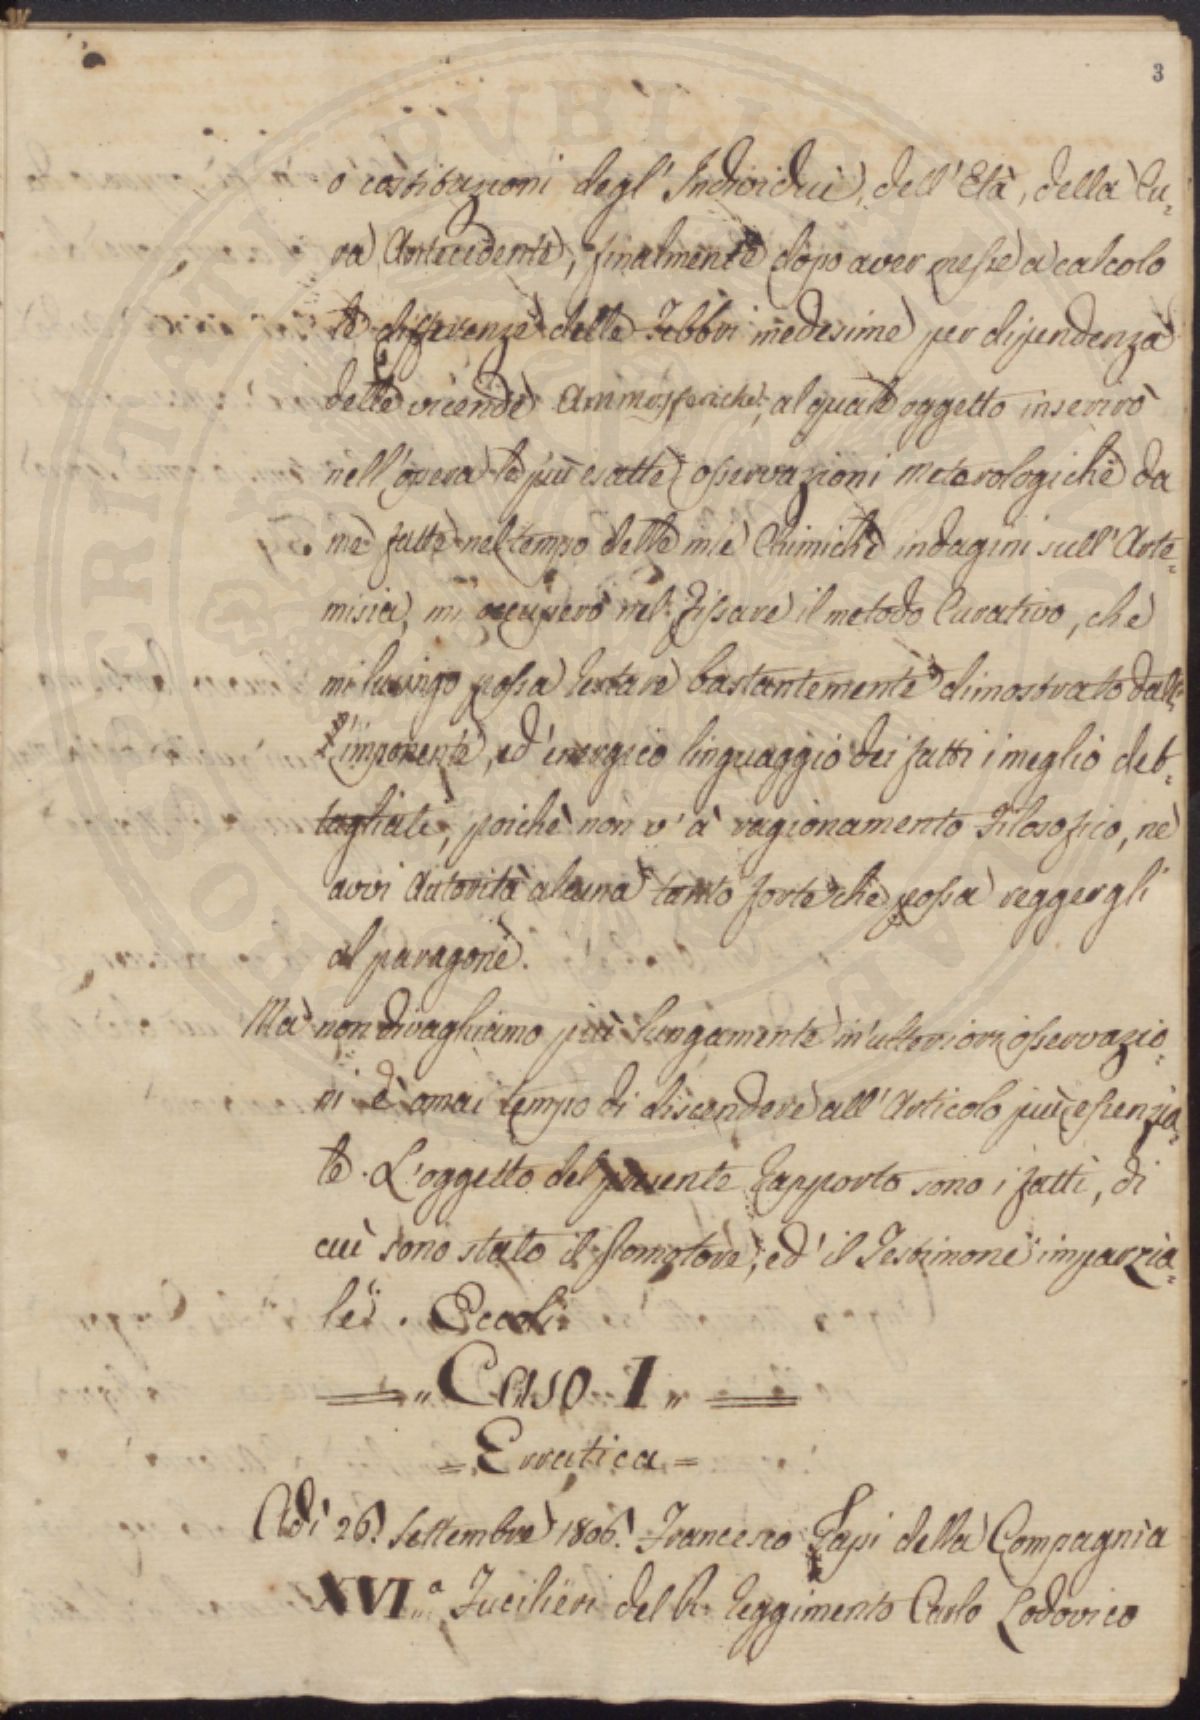 3
o costituzioni degl' Individui, dell' Età, della Cu=
ra Antecedente, finalmente dopo aver messe a calcolo
le differenze delle Febbri medesime per dipendenza
delle vicende Ammosferiche, al quale oggetto inserirò
nell' opera le più esatte osservazioni Meterologiche da
me fatte nel tempo delle mie Chimiche indagini sull' Arte=
misia, mi occuperò nel Fissare il metodo Curativo, che
mi lusingo possa restare bastantemente dimostrato dall'
imponente, ed' energico linguaggio dei fatti i meglio det=
tagliati, poichè non v' à ragionamento Filosofico, nè
avvi Autorità alcuna tanto forte che possa reggergli
al paragone.
Ma non divaghiamo più lungamente in' ulteriori osservazio=
ni è omai tempo di discendere all' Articolo più essenzia=
le. L' oggetto del presente rapporto sono i fatti, di
cui sono stato il Promotore, ed' il Testimone imparzia=
le. Eccoli
Caso I
= Erratica =
Adì 26. Settembre 1806. Francesco Papi della Compagnia
XVI.a Fucilieri del R. Reggimento Carlo Lodovico